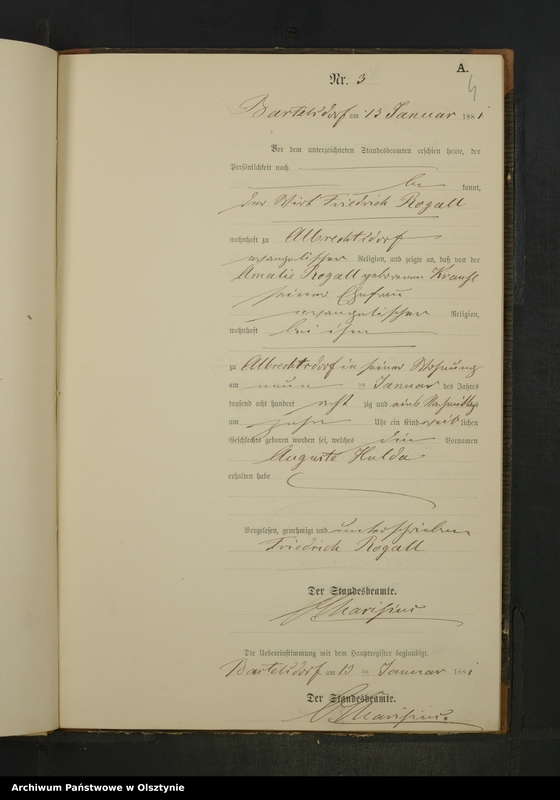 A.
Nr. 3
4
Bartelsdorf am 13 Januar 1881
Vor dem unterzeichneten Standesbeamten erschien heute, der
Persönlichkeit nach
be kannt,
der Wirt Friedrich Rogall
wohnhaft zu Albrechtsdorf
evangelischer Religion, und zeigte an, daß von der
Amalie Rogall geborenen
seiner Ehefrau
evangelischer Religion,
wohnhaft bei ihm
zu Albrechtsdorf in seiner Wohnung
am neun ten Januar des Jahres
tausend acht hundert acht zig und eins Nachmittags
um zehn Uhr ein Kind weib lichen
Geschlechts geboren worden sei, welches die Vornamen
Auguste Hulda
erhalten habe
Vorgelesen, genehmigt und unterschrieben
Friedrich Rogall
Der Standesbeamte.
Die Uebereinstimmung mit dem Hauptregister beglaubigt.
Bartelsdorf am 13 ten Januar 1881
Der Standesbeamte.
Archiwum Państwowe w Olsztynie